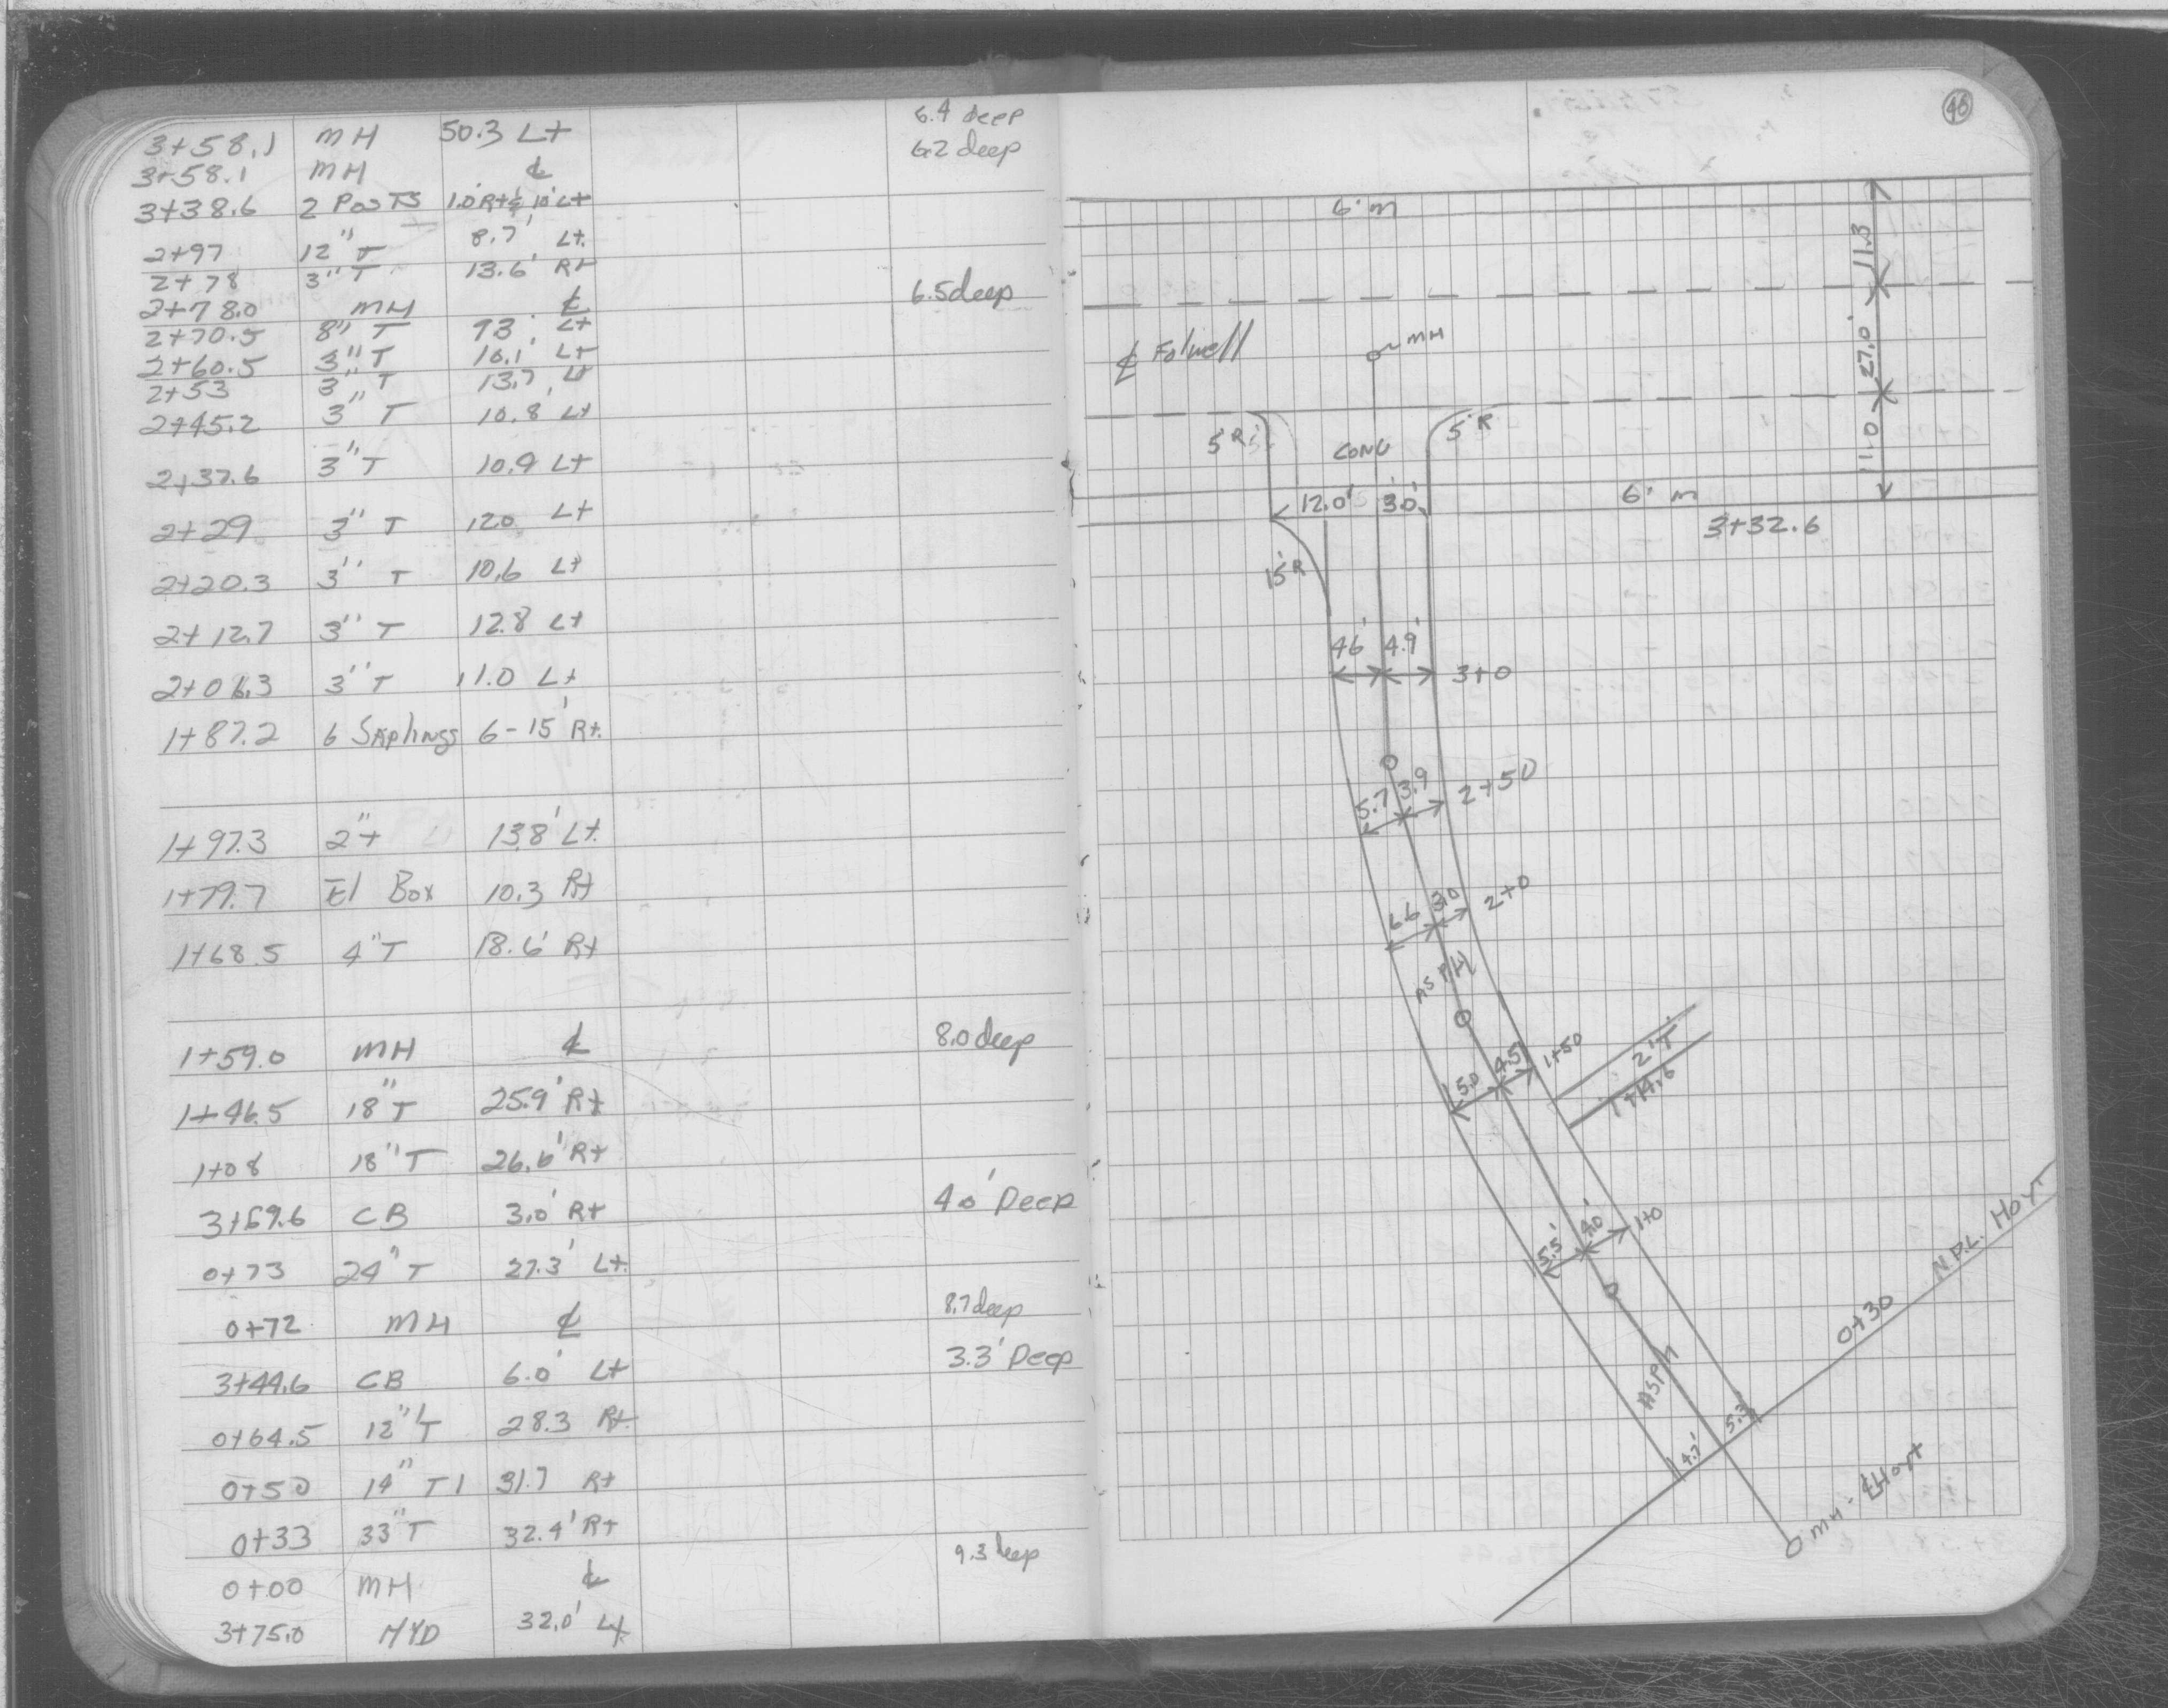 3+58.1 MH 50.3 Lt 6.4 deep
3+58.1 MH ℄ 6.2 deep
3+38.6 2 Posts 1.0'Rt & 10' Lt
2+97 12" T 8.7' Lt.
2+78 3" T 13.6' Rt
2+78.0 MH ℄ 6.5 deep
2+70.5 8" T 93' Lt
2+60.5 3" T 10.1' Lt
2+53 3" T 13.7' Lt
2+45.2 3" T 10.8' Lt
2+37.6 3" T 10.9 Lt
2+29 3" T 120 Lt
2+20.3 3" T 10.6 Lt
2+12.7 3" T 12.8 Lt
2+06.3 3" T 11.0 Lt
1+87.2 6 Saplings 6-15' Rt.
1+97.3 2" T 13.8' Lt.
1+79.7 El Box 10.3 Rt
1+68.5 4" T 18.6' Rt
1+59.0 MH ℄ 8.0 deep
1+46.5 18" T 25.9' Rt
1+08 18" T 26.6' Rt
3+69.6 CB 3.0' Rt 4.0' Deep
0+73 24" T 27.3' Lt.
0+72 MH ℄ 8.7 deep
3+44.6 CB 6.0' Lt 3.3' Deep
0+64.5 12" T 28.3 Rt.
0+50 14" T 31.7 Rt
0+33 33" T 32.4' Rt
0+00 MH ℄ 9.3 deep
3+75.0 HYD 32.0' Lt
46
6' m
11.3
27.0'
11.0
℄ Folwell
MH
5' R
CONC
5' R
12.0' 3.0'
6' m
3+32.6
15' R
46' 4.9'
3+0
5.7 3.9 2+50
6.6 3.0 2+0
ASPH
5.0 4.5 1+50
2' T
1+14.6
5.5' 4.0' 1+0
N.P.L. Hoyt
0+30
ASPH
4.7' 5.3'
MH - ℄ Hoyt